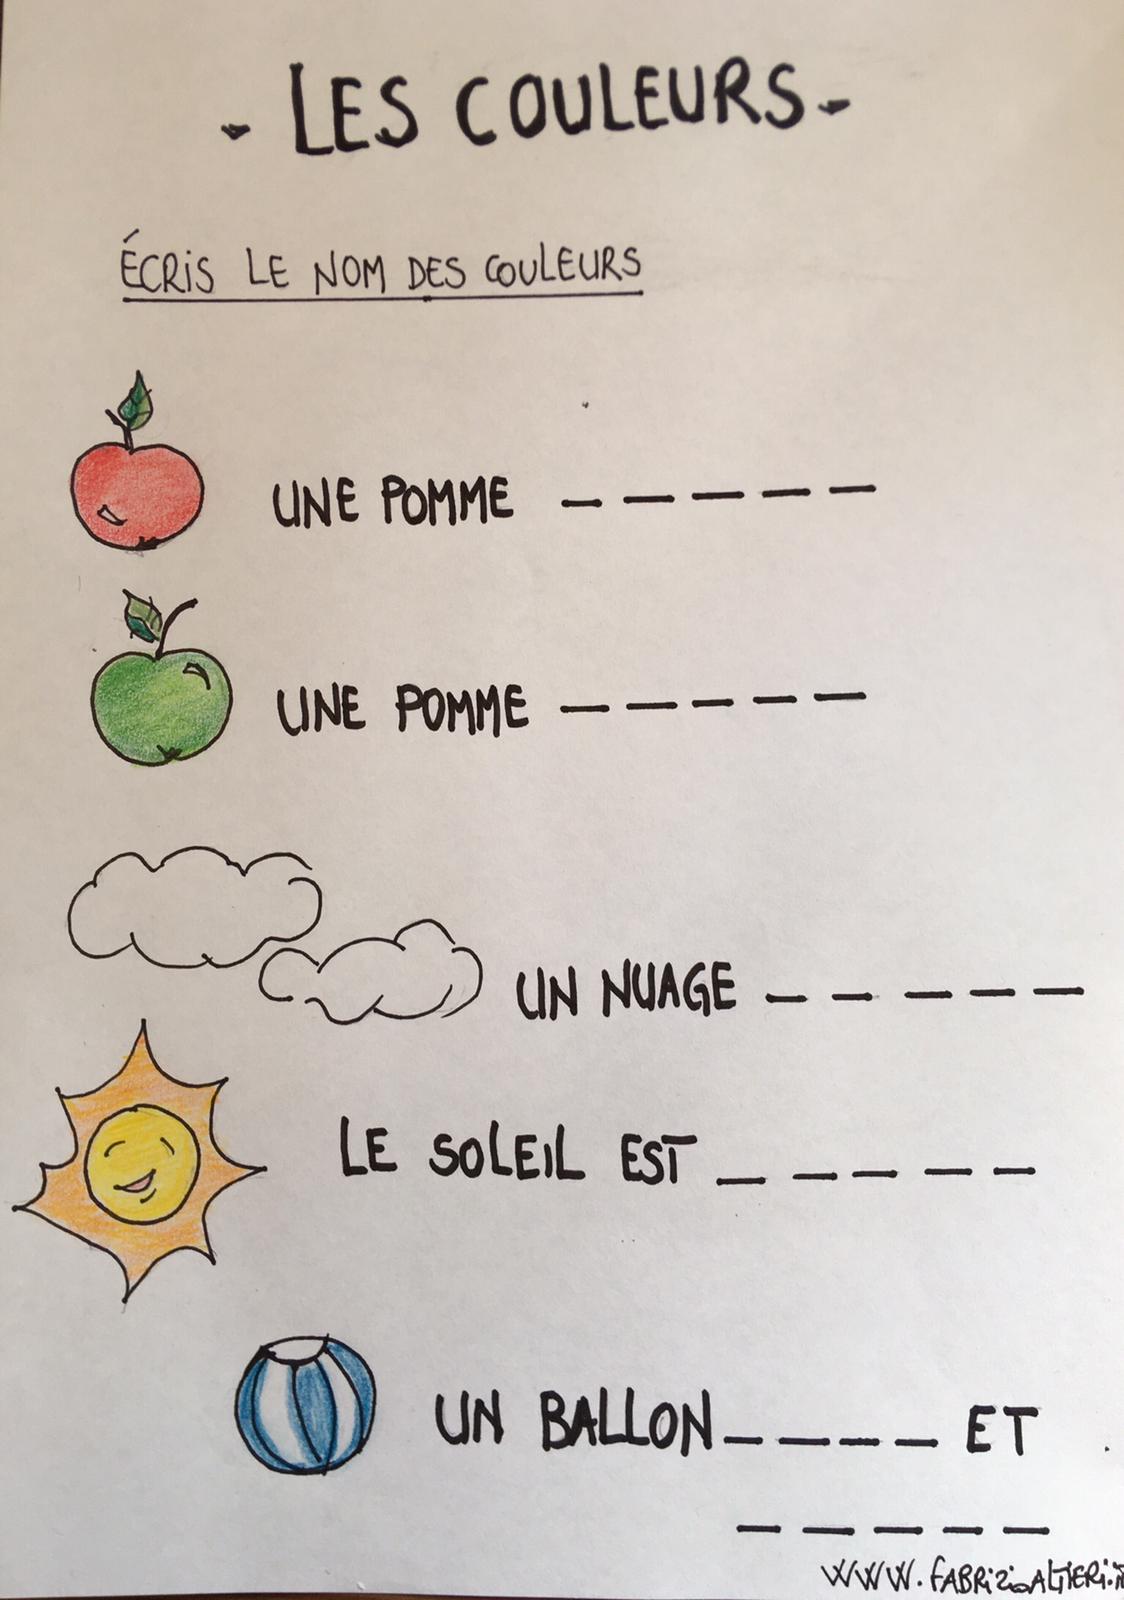 - LES COULEURS -
ÉCRIS LE NOM DES COULEURS
UNE POMME _ _ _ _ _
UNE POMME _ _ _ _ _
UN NUAGE _ _ _ _ _
LE SOLEIL EST _ _ _ _ _
UN BALLON _ _ _ _ ET
_ _ _ _ _